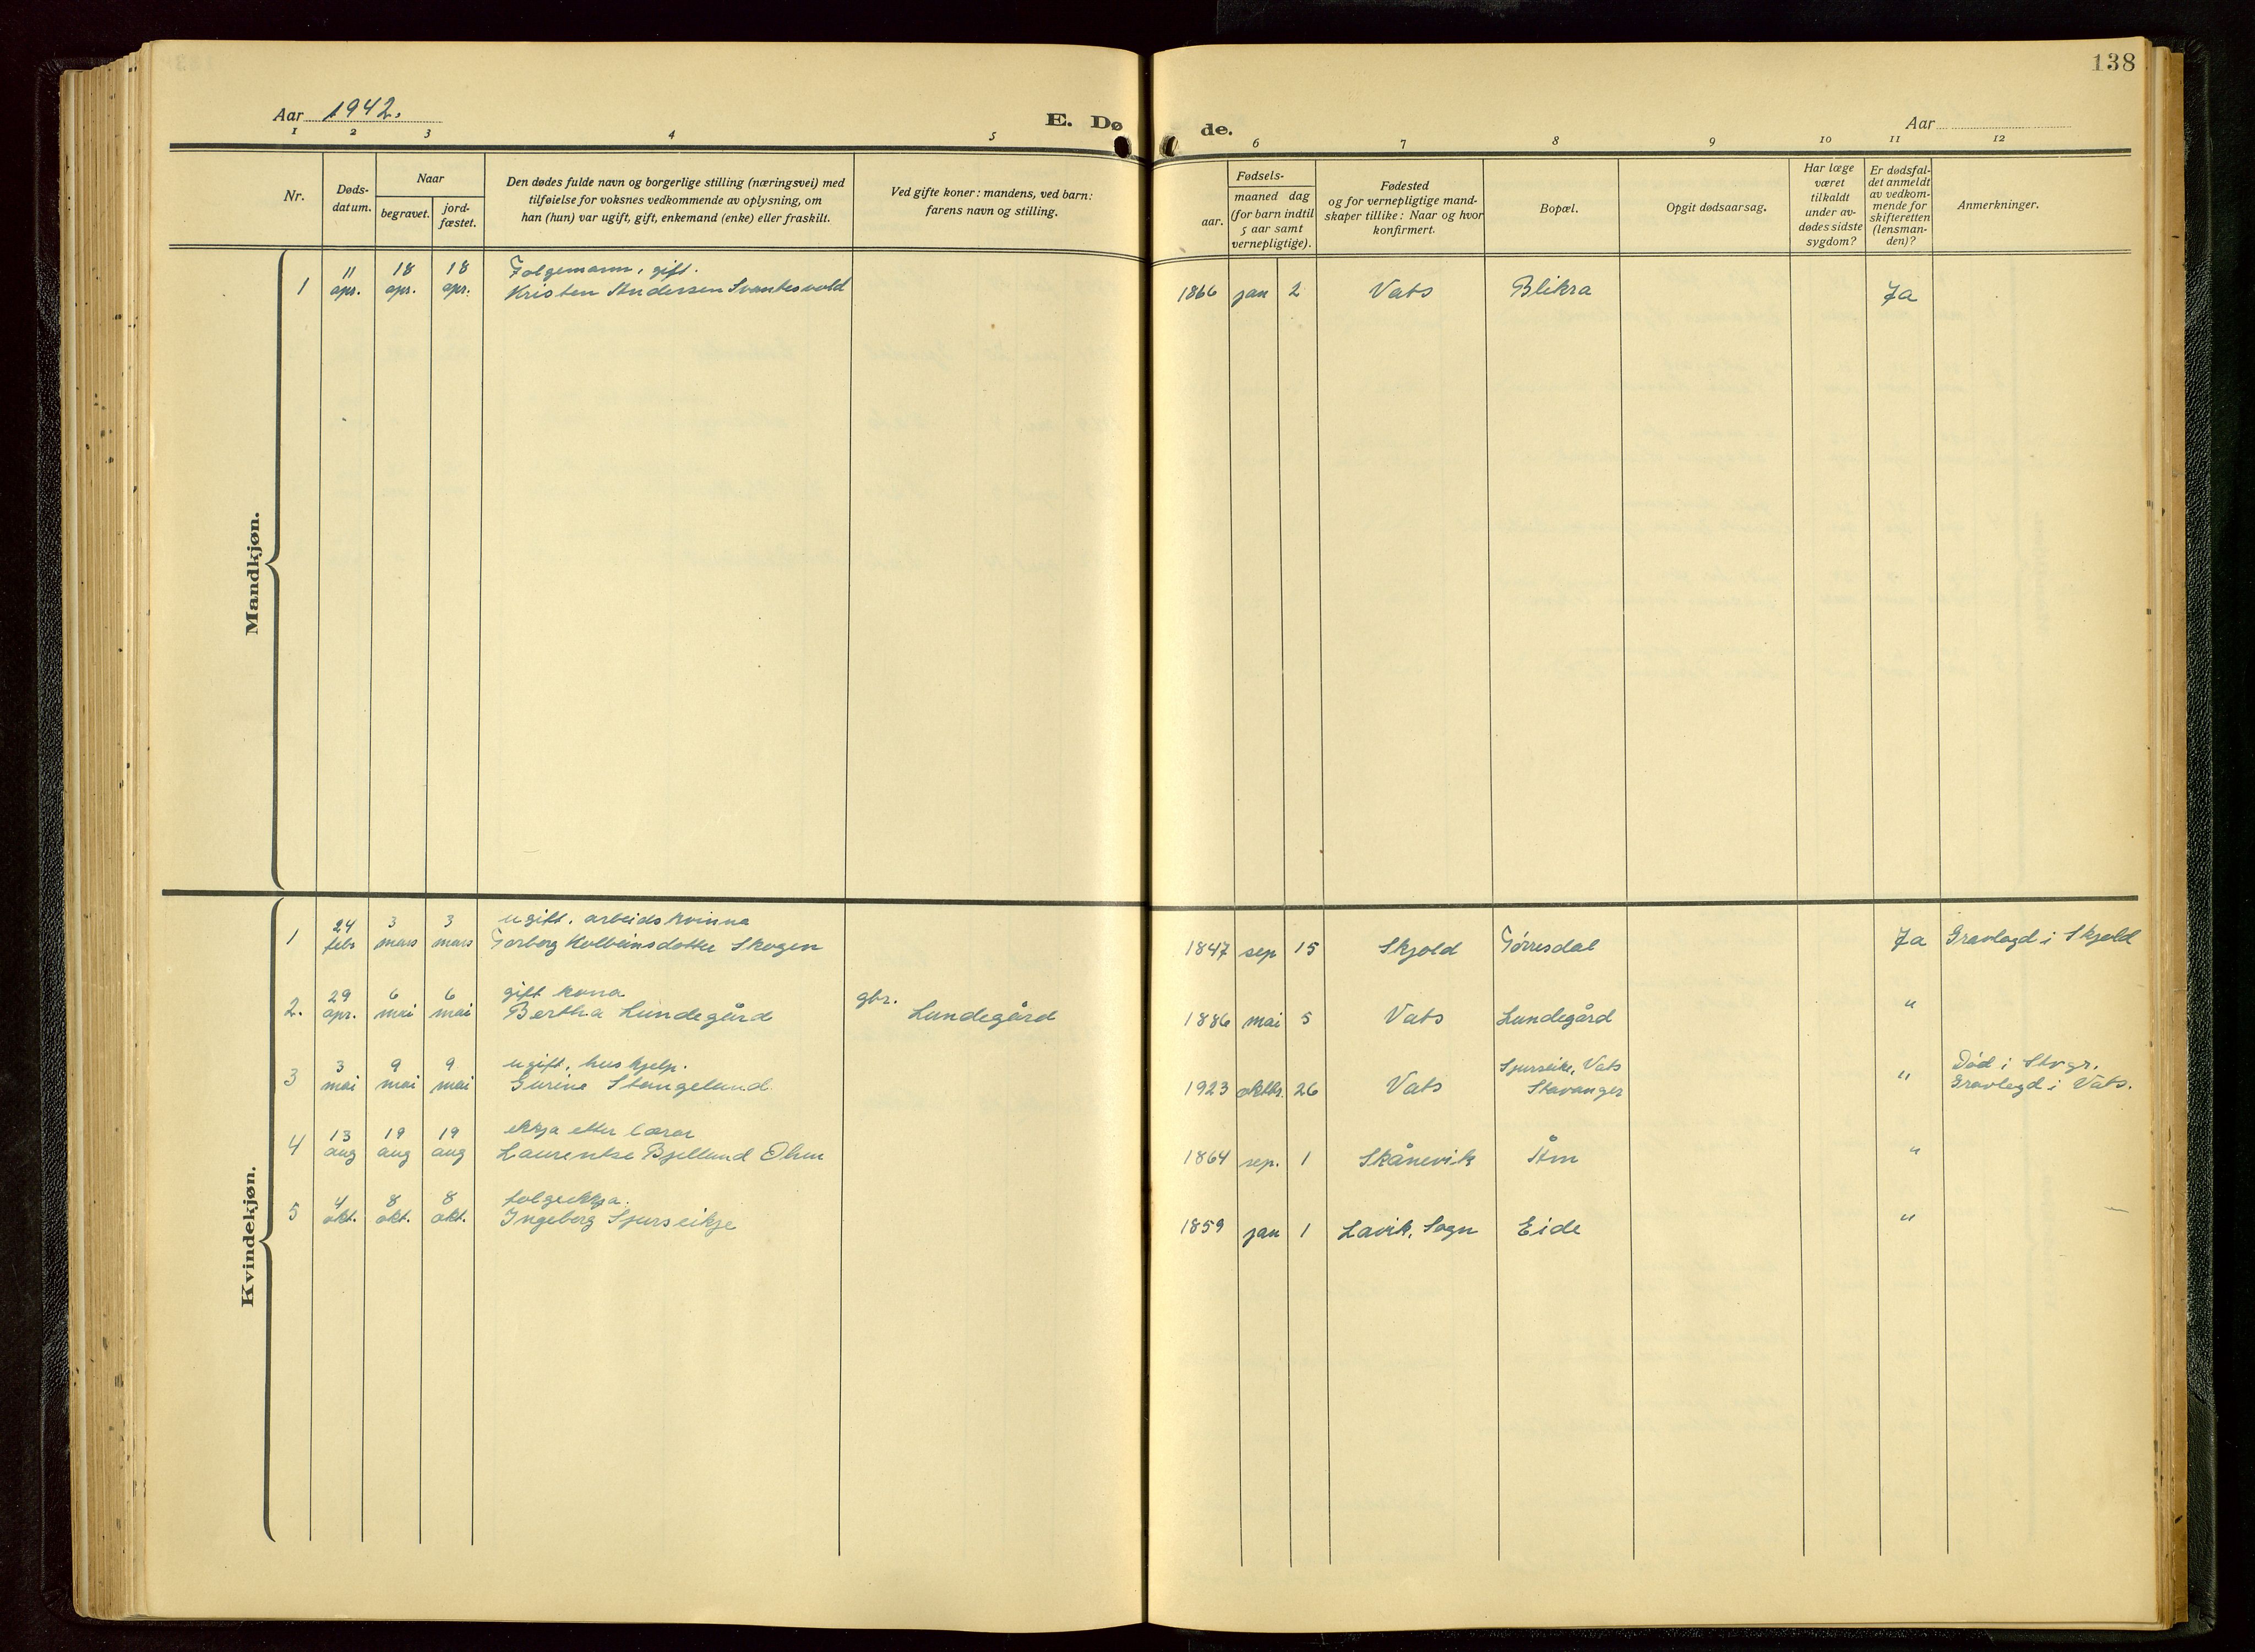 138
Aar 1942.
E. Dø de.
Aar
1 2 3 4 5 6 7 8 9 10 11 12
Nr.
Døds-
datum.
Naar
begravet.
jord-
fæstet.
Den dødes fulde navn og borgerlige stilling (næringsvei) med
tilføielse for voksnes vedkommende av oplysning, om
han (hun) var ugift, gift, enkemand (enke) eller fraskilt.
Ved gifte koner: mandens, ved barn:
farens navn og stilling.
Fødsels-
aar.
maaned dag
(for barn indtil
5 aar samt
vernepligtige).
Fødested
og for vernepligtige mand-
skaper tillike: Naar og hvor
konfirmert.
Bopæl.
Opgit dødsaarsag.
Har læge
været
tilkaldt
under av-
dødes sidste
sygdom?
Er dødsfal-
det anmeldt
av vedkom-
mende for
skifteretten
(lensman-
den)?
Anmerkninger.
Mandkjøn.
11 18 18 Folgemann, gift.
1 apr. apr. apr. Kristen Andersen Svantesvold 1866 jan 2 Vats Blikra Ja
Kvindekjøn.
24 3 3 ugift. arbeidskvinna
1 febr mars mars Torborg Kolbeinsdotter Skogen 1847 sep 15 Skjold Tørresdal Ja Gravlagd i Skjold
29 6 6 gift kona gbr.
2. apr. mai mai Bertha Lundegård Lundegård 1886 mai 5 Vats Lundegård "
3 9 9 ugift, huskjelp. Sjurseike, Vats Død i Stvgr.
3 mai mai mai Gurine Stangeland 1923 oktbr. 26 Vats Stavanger " Gravlagd i Vats.
13 19 19 ekkja etter lærar
4 aug aug aug Laurentse Bjelland Ohm 1864 sep. 1 Skånevik Åm "
4 8 8 folgeekkja.
5 okt. okt. okt. Ingeborg Sjurseikje 1859 jan 1 Lavik, Sogn Eide "